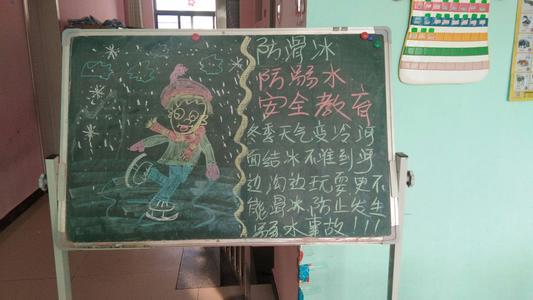 防滑冰
防溺水
安全教育
冬季天气变冷河
面结冰不准到河
边沟边玩耍更不
能滑冰,防止发生
溺水事故!!!